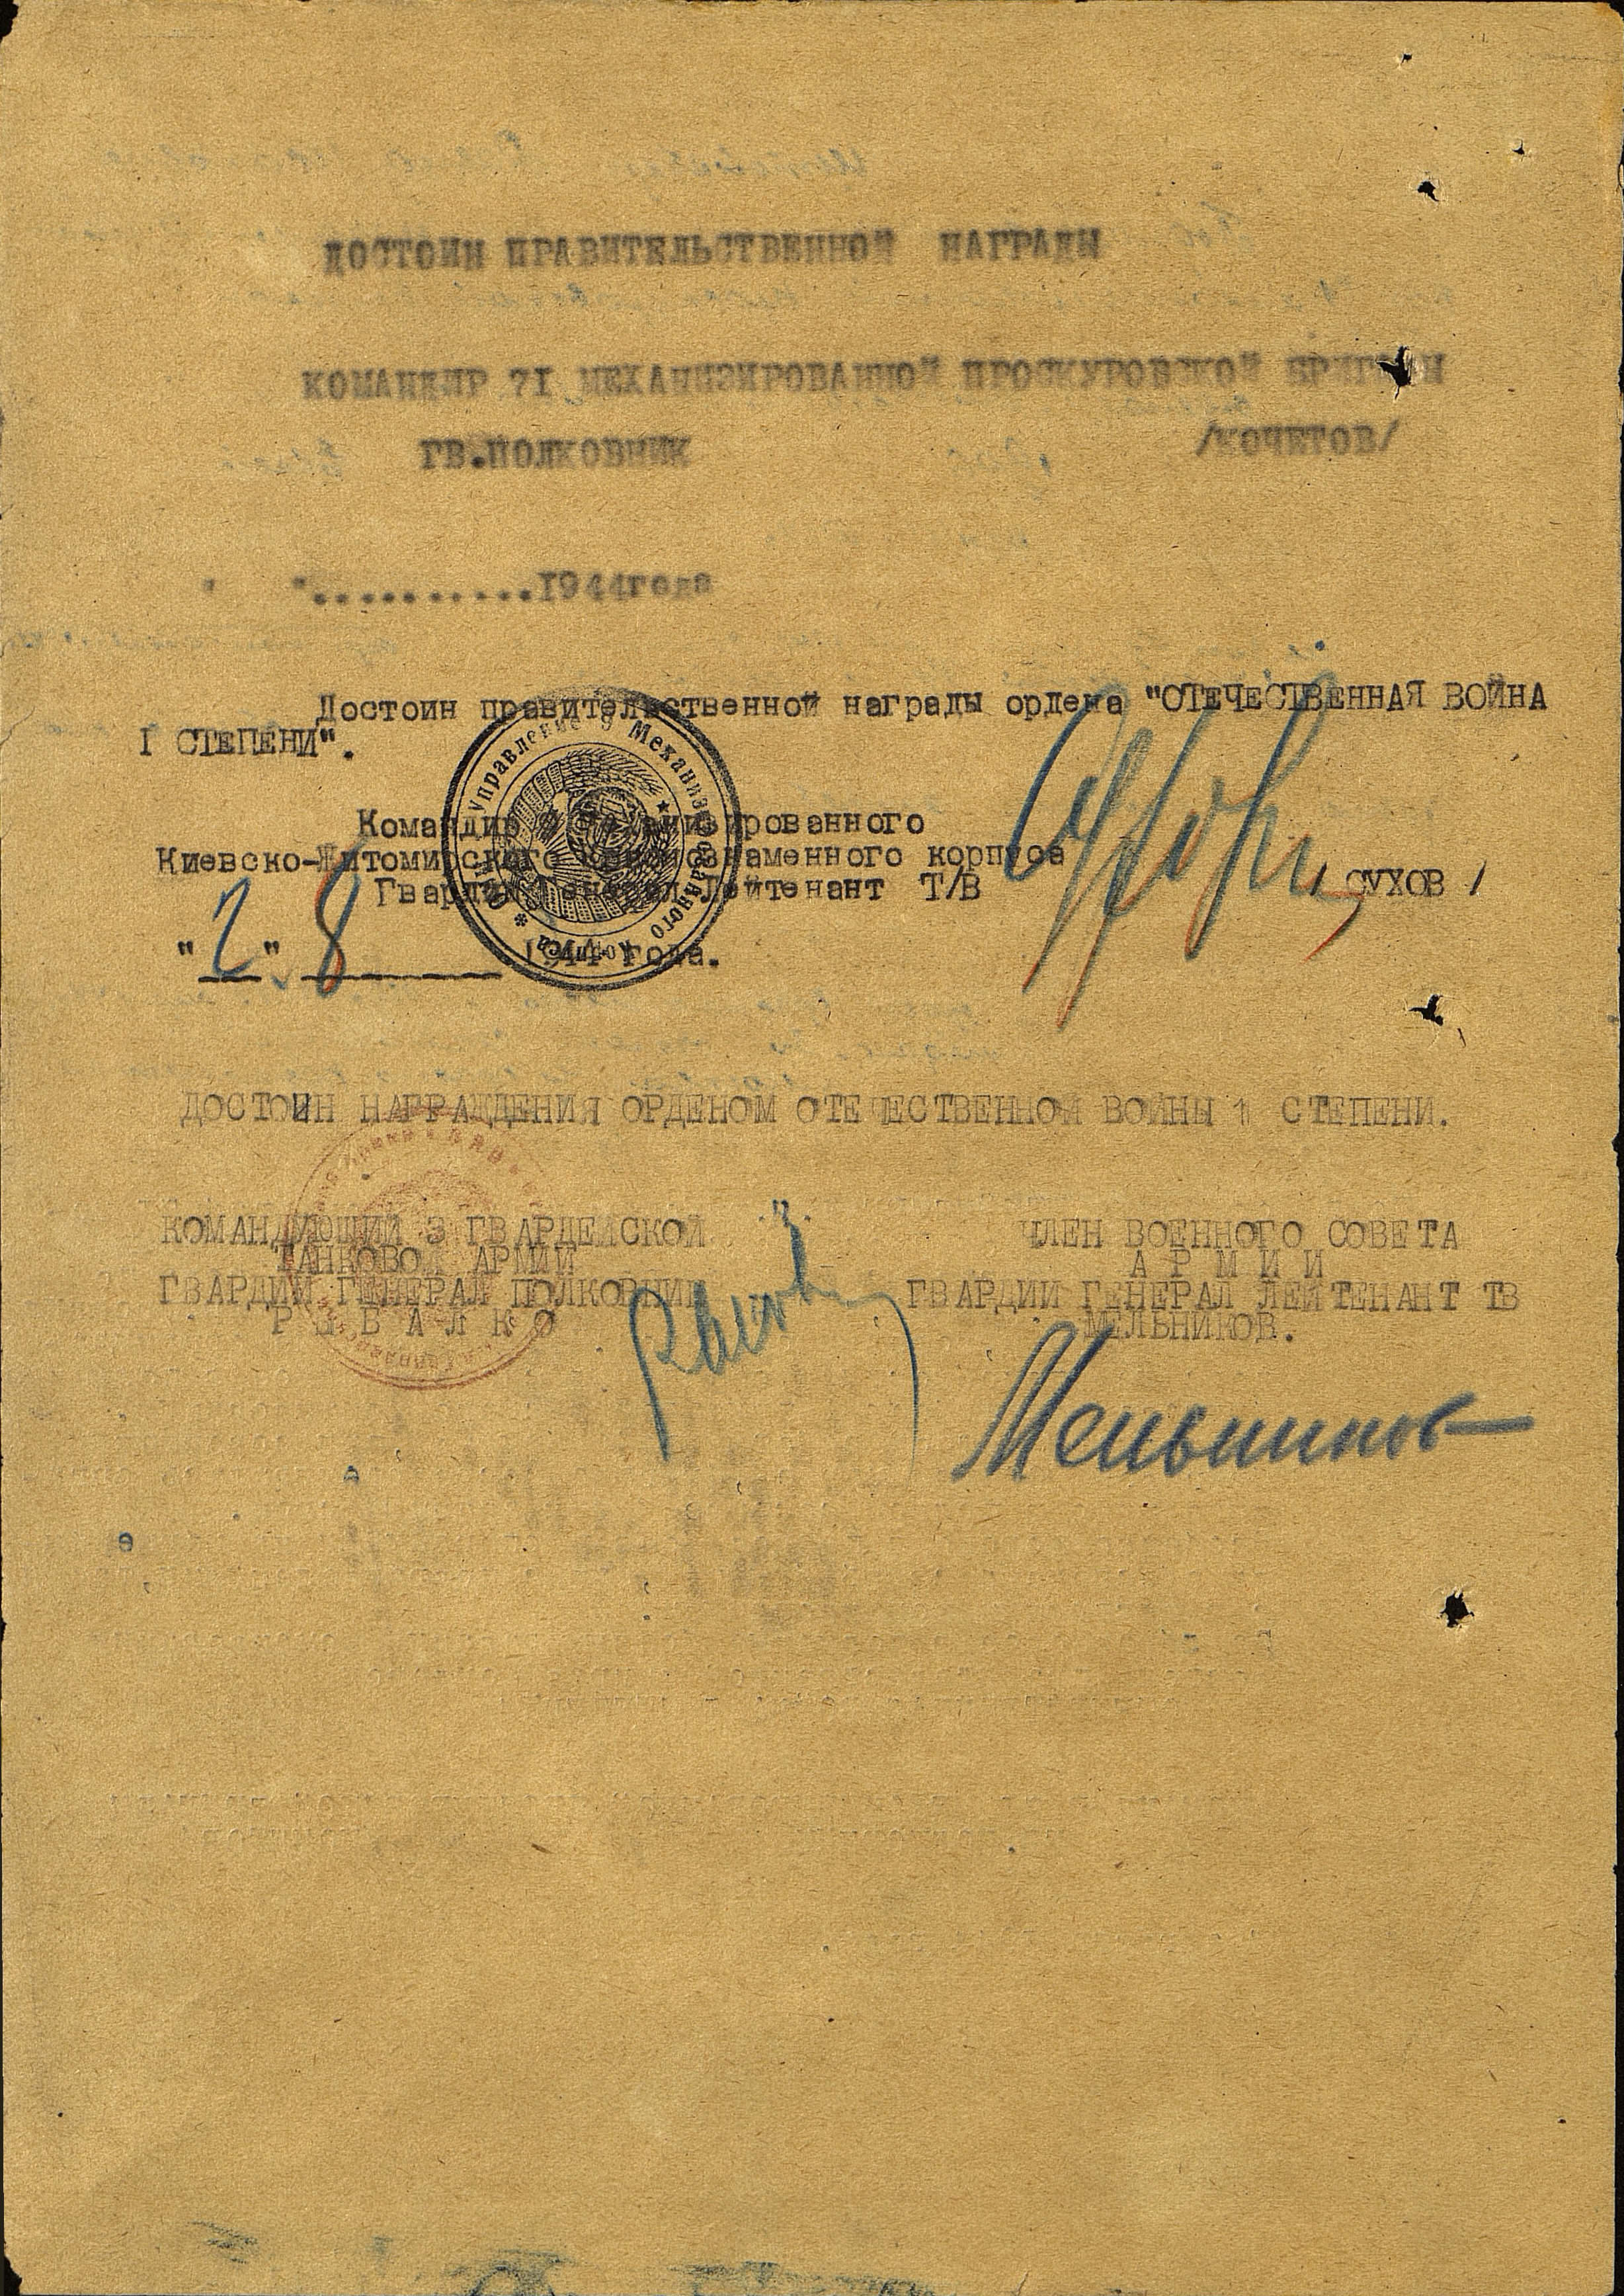 ДОСТОИН ПРАВИТЕЛЬСТВЕННОЙ НАГРАДЫ
КОМАНДИР 7I МЕХАНИЗИРОВАННОЙ ПРОСКУРОВСКОЙ БРИГАДЫ
ГВ.ПОЛКОВНИК /КОЧЕТОВ/
" "..........I944года
Достоин правительственной награды ордена "ОТЕЧЕСТВЕННАЯ ВОЙНА
I СТЕПЕНИ".
Управление 9 Механизированного Корпуса
Командир 9 Механизированного
Киевско-Житомирского Краснознаменного корпуса
Гвардии Генерал-Лейтенант Т/В / СУХОВ /
"2" 8 1944 года.
ДОСТОИН НАГРАЖДЕНИЯ ОРДЕНОМ ОТЕЧЕСТВЕННОЙ ВОЙНЫ 1 СТЕПЕНИ.
КОМАНДУЮЩИЙ 3 ГВАРДЕЙСКОЙ ЧЛЕН ВОЕННОГО СОВЕТА
ТАНКОВОЙ АРМИИ А Р М И И
ГВАРДИИ ГЕНЕРАЛ ПОЛКОВНИК ГВАРДИИ ГЕНЕРАЛ ЛЕЙТЕНАНТ ТВ
Р Ы Б А Л К О МЕЛЬНИКОВ.
Мельников